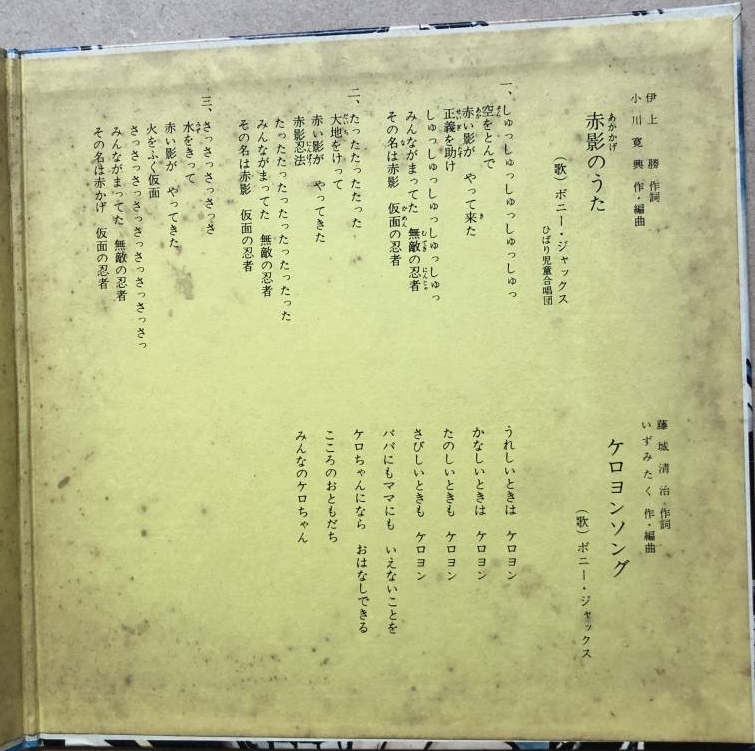 伊上 勝 作詞
小川寛興 作・編曲
赤影のうた
(歌)ボニー・ジャックス
ひばり児童合唱団
一、しゅっしゅっしゅっしゅっしゅっ
空をとんで
赤い影が やって来た
正義を助け
しゅっしゅっしゅっしゅっしゅっ
みんながまってた 無敵の忍者
その名は赤影 仮面の忍者
二、たったったったった
大地をけって
赤い影が やってきた
赤影忍法
たったったったったったったったった
みんながまってた 無敵の忍者
その名は赤影 仮面の忍者
三、さっさっさっさっさ
水をきって
赤い影が やってきた
火をふく仮面
さっさっさっさっさっさっさっさっさっ
みんながまってた 無敵の忍者
その名は赤かげ 仮面の忍者
藤城清治・作詞
いずみたく 作・編曲
ケロヨンソング
(歌)ボニー・ジャックス
うれしいときは ケロヨン
かなしいときは ケロヨン
たのしいときも ケロヨン
さびしいときも ケロヨン
パパにもママにも いえないことを
ケロちゃんになら おはなしできる
こころのおともだち
みんなのケロちゃん